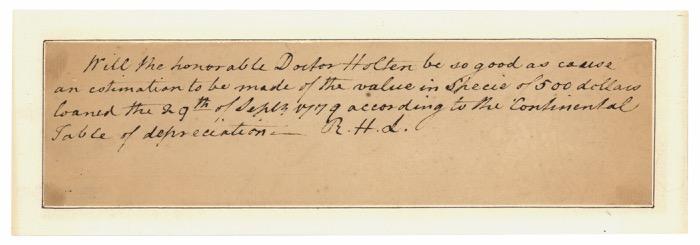 Will the honorable Doctor Holten be so good as cause
an estimation to be made of the value in Specie of 500 dollars
loaned the 29th of Septr. 1779 according to the Continental
Table of depreciation — R. H. L.